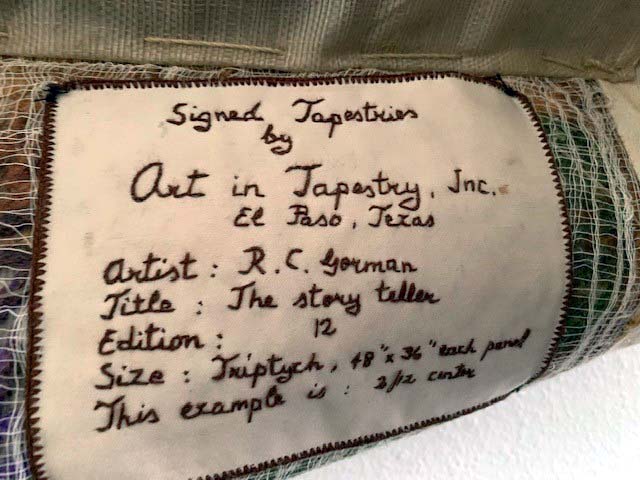 Signed Tapestries
by
Art in Tapestry, Inc.
El Paso, Texas
Artist : R. C. Gorman
Title : The story teller
Edition : 12
Size : Triptych, 48" x 36" each panel
This example is : 2/12 center